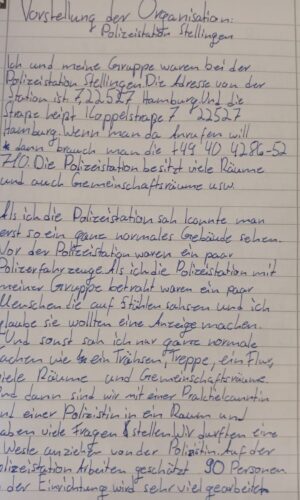 Vorstellung der Organisation:
Polizeistation Stellingen
Ich und meine Gruppe waren bei der
Polizeistation Stellingen. Die Adresse von der
Station ist 7, 22527 Hamburg. Und die
Straße heißt Koppelstraße 7 22527
Hamburg. Wenn man da Anrufen will
dann brauch man die +49 40 4286-52
710. Die Polizeistation besitzt viele Räume
und auch Gemeinschaftsräume usw.
Als ich die Polizeistation sah konnte man
erst so ein ganz normales Gebäude sehen.
Vor der Polizeistation waren ein paar
Polizerfahrzeuge. Als ich die Polizeistation mit
meiner Gruppe betraht waren ein paar
Menschen die auf Stühlen sahsen und ich
glaube sie wollten eine Anzeige machen.
Und sonst sah ich nur ganze normale
achen wie ein Trähsen, Treppe, ein Flur,
iele Räume und Gemeinschaftsräume.
nd dann sind wir mit einer Praktikantin
und einer Polizistin in ein Raum und
aben viele Fragen stellen. Wir durften eine
Weste anziehen von der Polistin. Auf der
olizeistation Arbeiten geschätzt 90 Personen.
n der Einrichtung wird sehr viel gearbeitet